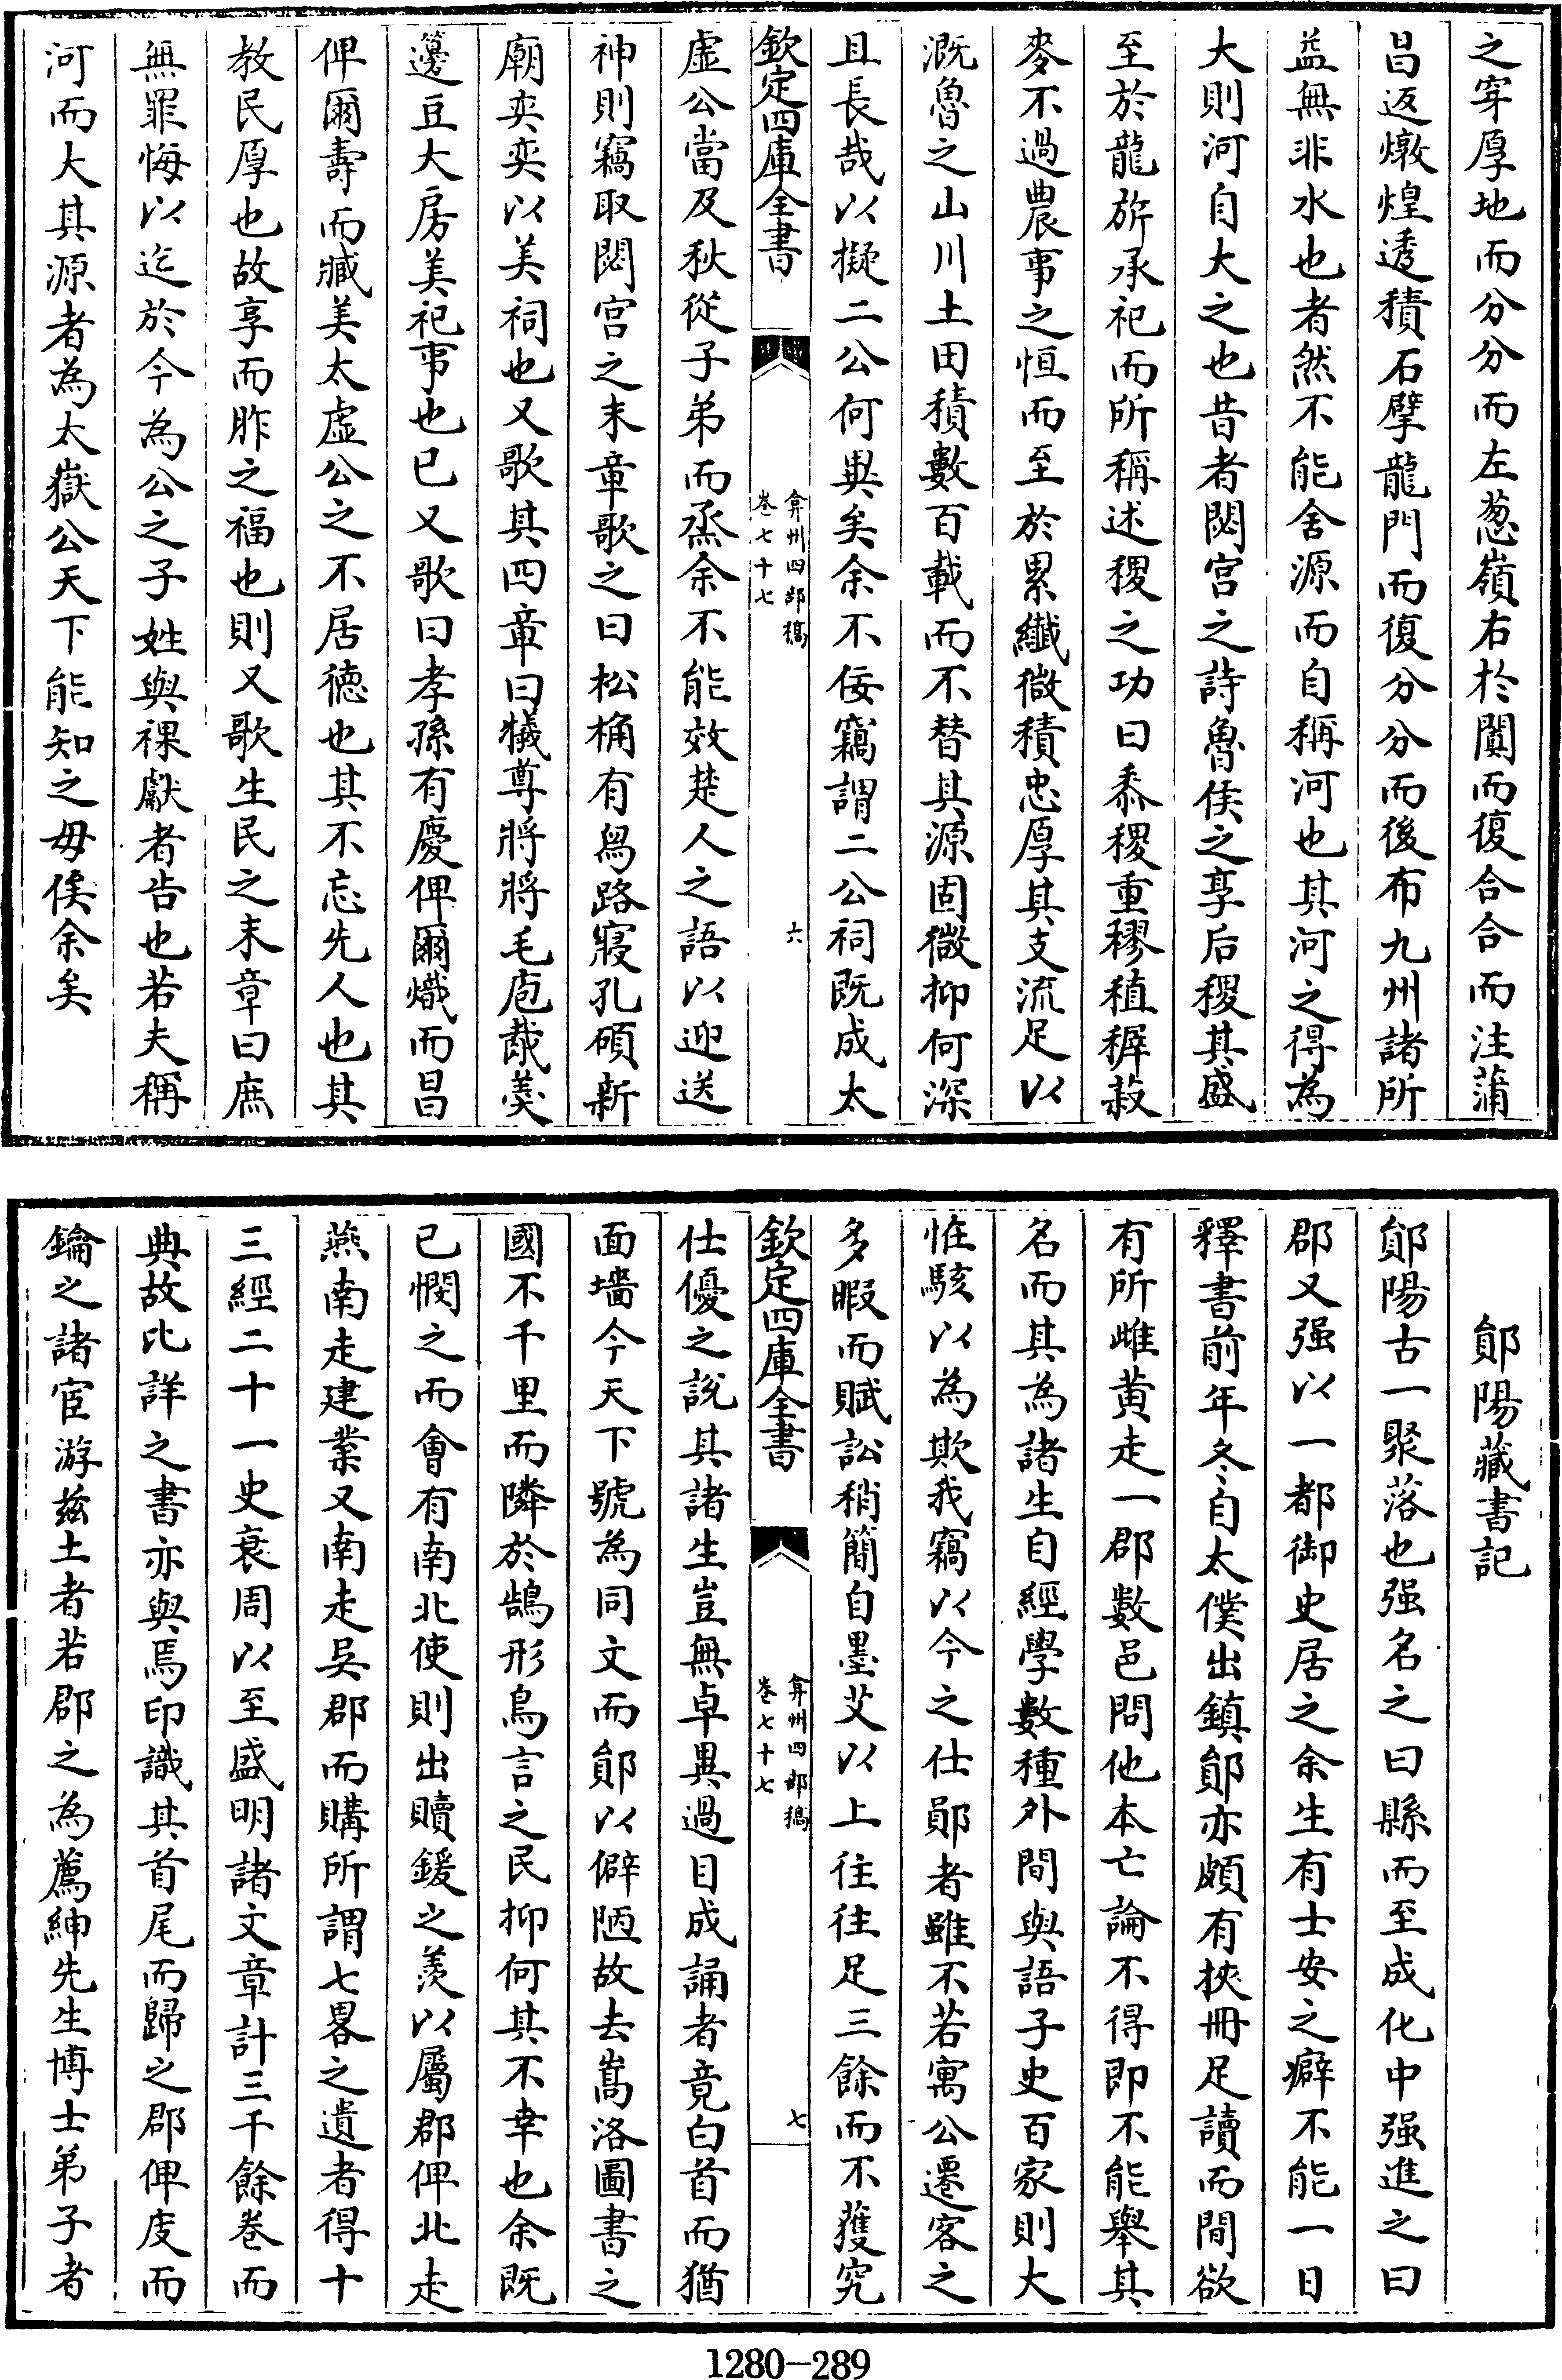 之穿厚地而分分而左葱嶺右於闐而復合合而注蒲
昌返燉煌透積石擘龍門而復分分而後布九州諸所
益無非水也者然不能舍源而自稱河也其河之得為
大則河自大之也昔者閟宫之詩魯侯之享后稷其盛
至於龍旂承祀而所稱述稷之功曰黍稷重穋稙穉菽
麥不過農事之恒而至於累纖微積忠厚其支流足以
溉魯之山川土田積數百載而不替其源固微抑何深
且長哉以擬二公何異矣余不佞竊謂二公祠既成太
欽定四庫全書
弇州四部稿
卷七十七
六
虛公當及秋從子弟而烝余不能效楚人之語以迎送
神則竊取閟宫之末章歌之曰松桷有舄路寢孔碩新
廟奕奕以美祠也又歌其四章曰犧尊將將毛庖胾羹
籩豆大房美祀事也已又歌曰孝孫有慶俾爾熾而昌
俾爾壽而臧美太虛公之不居德也其不忘先人也其
教民厚也故享而胙之福也則又歌生民之末章曰庶
無罪悔以迄於今為公之子姓與祼獻者告也若夫稱
河而大其源者為太嶽公天下能知之毋俟余矣
鄖陽藏書記
鄖陽古一聚落也强名之曰縣而至成化中强進之曰
郡又强以一都御史居之余生有士安之癖不能一日
釋書前年冬自太僕出鎮鄖亦頗有挾冊足讀而間欲
有所雌黄走一郡數邑問他本亡論不得即不能舉其
名而其為諸生自經學數種外間與語子史百家則大
恠駭以為欺我竊以今之仕鄖者雖不若寓公遷客之
多暇而賦訟稍簡自墨艾以上往往足三餘而不獲究
欽定四庫全書
弇州四部稿
卷七十七
七
仕優之說其諸生豈無卓異過目成誦者竟白首而猶
面墻今天下號為同文而鄖以僻陋故去嵩洛圖書之
國不千里而隣於鵠形鳥言之民抑何其不幸也余既
已憫之而會有南北使則出贖鍰之羨以屬郡俾北走
燕南走建業又南走吳郡而購所謂七畧之遺者得十
三經二十一史衰周以至盛明諸文章計三千餘卷而
典故比詳之書亦與焉印識其首尾而歸之郡俾庋而
鑰之諸宦游兹土者若郡之為薦紳先生博士弟子者
1280-289